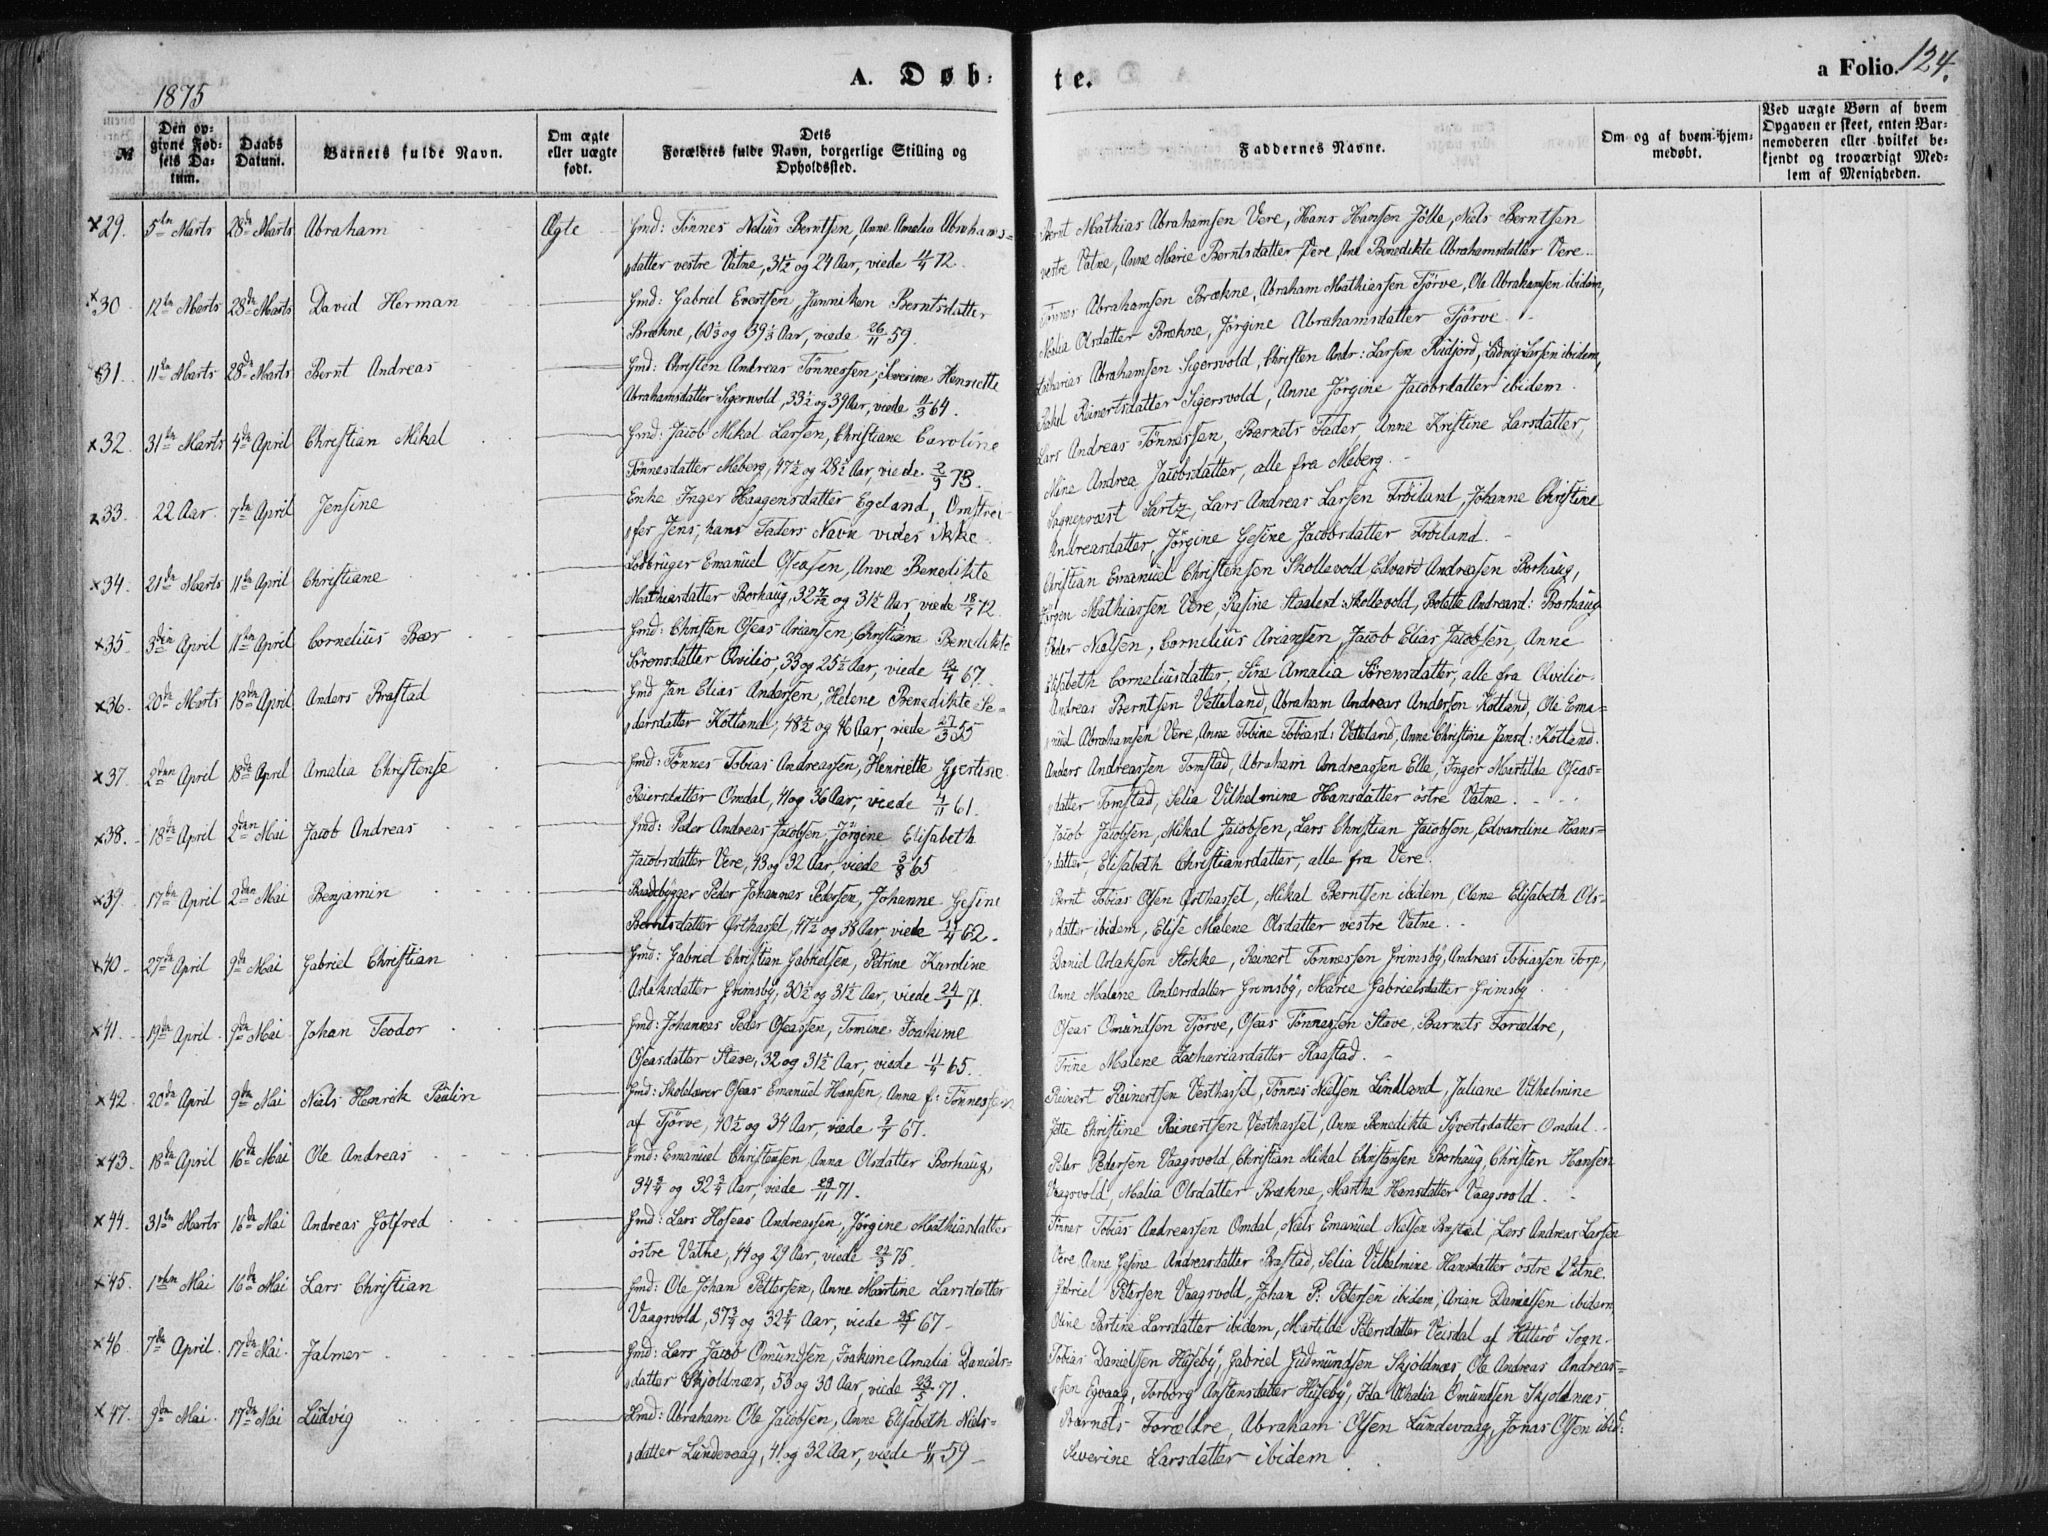 1875
A. Døb-
te.
a Folio. 124.
№
Den opgivne Fødsels Datum.
Daabs Datum.
Barnets fulde Navn.
Om ægte eller uægte født.
Dets Forældres fulde Navn, borgerlige Stilling og Opholdssted.
Faddernes Navne.
Om og af hvem hjemmedøbt.
Ved uægte Børn af hvem Opgaven er skeet, enten Barnemoderen eller hvilket bekjendt og troværdigt Medlem af Menigheden.
×29. 5te Marts 28de Marts Abraham Ægte Gmd: Tønnes Nelius Berntsen, Anne Amalia Abrahams-
datter vestre Vatne, 31½ og 24 Aar, viede 11/4 72.
Bernt Mathias Abrahamsen Vere, Hans Hansen Jølle, Niels Berntsen
vestre Vatne, Anne Marie Berntsdatter Vere, Ane Benedikte Abrahamsdatter Vere.
×30 12te Marts 28de Marts David Herman Gmd: Gabriel Evertsen, Janniken Berntsdatter
Brækne, 60⅓ og 39⅓ Aar, viede 26/11 59.
Tønnes Abrahamsen Brækne, Abraham Mathiassen Tjörve, Ole Abrahamsen ibidem,
Malia Olsdatter Brækne, Jörgine Abrahamsdatter Tjörve.
×31. 11te Marts 28de Marts Bernt Andreas Gmd: Christen Andreas Tönnessen, Severine Henriette
Abrahamsdatter Sigersvold, 33½ og 39 Aar, viede 11/3 64.
Zacharias Abrahamsen Sigersvold, Christen Andr: Larsen Rudjord, Ludvig Larsen ibidem,
Rakel Reinertsdatter Sigersvold, Anne Jörgine Jacobsdatter ibidem.
×32. 31te Marts 4de April Christian Mikal Gmd: Jacob Mikal Larsen, Christiane Caroline
Tönnesdatter Meberg, 47½ og 28½ Aar, viede 2/9 73.
Lars Andreas Tönnessen, Barnets Fader, Anne Kristine Larsdatter,
Mine Andrea Jacobsdatter, alle fra Meberg.
×33. 22 Aar. 7de April Jensine Enke Inger Haagensdatter Egeland, Omstrei-
fer Jens, hans Faders Navn vides ikke.
Sogneprest Sartz, Lars Andreas Larsen Fröiland, Johanne Christine
Andreasdatter, Jörgine Gesine Jacobsdatter Fröiland.
×34. 21de Marts 11te April Christiane Lodbruger Emanuel Oseasen, Anne Benedikte
Mathiasdatter Borhaug, 32 og 31½ Aar viede 72.
Christian Emanuel Christensen Skollevold, Edvard Andreasen Borhaug,
Jörgen Mathiassen Vere, Rasine Staalesd: Skollevold, Bolette Andreasd: Borhaug
×35. 3die April 11te April Cornelius Bær Gmd: Christen Oseas Ariansen, Christiane Benedikte
Sörensdatter Qvilio, 33 og 25½ Aar, viede 12/4 67.
Peder Nielsen, Cornelius Ariansen, Jacob Elias Jacobsen, Anne
Elisabeth Corneliusdatter, Sine Amalia Sörensdatter, alle fra Qvilio.
×36. 20de Marts 18de April Anders Brastad Gmd Jan Elias Andersen, Helene Benedikte Pe-
dersdatter Kötland, 48½ og 46 Aar, viede 27/3 55
Andreas Berntsen Vetteland, Abraham Andreas Andersen Kötland, Ole Ema-
nuel Abrahamsen Vere, Anne Tobine Tobiasd: Vetteland, Anne Christine Jansd: Kötland.
×37. 2den April 18de April Amalia Christense Gmd: Tönnes Tobias Andreassen, Henriette Gjertine
Reiersdatter Omdal, 41 og 36 Aar, viede 4/11 61.
Anders Andreassen Tomstad, Abraham Andreassen Elle, Inger Martilde Oseas-
datter Tomstad, Selia Vilhelmine Hansdatter östre Vatne.
×38. 18de April 2den Mai Jacob Andreas Gmd: Peder Andreas Jacobsen, Jörgine Elisabeth
Jacobsdatter Vere, 43 og 32 Aar, viede 3/8 65
Jacob Jacobsen, Mikal Jacobsen, Lars Christian Jacobsen, Edvardine Hans-
datter, Elisabeth Christiansdatter, alle fra Vere.
×39. 17de April 2den Mai Benjamin Baadebygger Peder Johannes Pedersen, Johanne Gesine
Berntsdatter Østhassel, 47½ og 38 Aar, viede 62.
Bernt Tobias Olsen Østhassel, Mikal Berntsen ibidem, Olene Elisabeth Ols-
datter ibidem, Elise Malene Olsdatter vestre Vatne.
×40. 27de April 9de Mai Gabriel Christian Gmd: Gabriel Christian Gabrielsen, Petrine Karoline
Aslaksdatter Grimsby, 30½ og 31½ Aar, viede 24/1 71.
Daniel Aslaksen Stokke, Reinert Tönnessen Grimsby, Andreas Tobiassen Torp,
Anne Malene Andersdatter Grimsby, Marie Gabrielsdatter Grimsby.
×41. 19de April 9de Mai Johan Teodor Gmd: Johannes Peder Oseassen, Tomine Joakime
Oseasdatter Stave, 32 og 31½ Aar, viede 11/4 65.
Oseas Omundsen Tjörve, Oseas Tönnessen Stave, Barnets Forældre,
Trine Malene Zachariasdatter Raastad.
×42. 20de April 9de Mai Niels Henrik Paulin Gmd: Skolelærer Oseas Emanuel Hansen, Anna f: Tönnessen
af Tjörve, 40½ og 34 Aar, viede 67.
Reinert Reinertsen Vesthassel, Tönnes Nielsen Lindland, Juliane Vilhelmine
Jette Christine Reinertsen Vesthassel, Anne Benedikte Syvertsdatter Omdal.
×43. 18de April 16de Mai Ole Andreas Gmd: Emanuel Christensen, Anna Olsdatter Borhaug,
34¾ og 32¾ Aar, viede 29/11 71.
Peder Pedersen Vaagsvold, Christian Mikal Christensen Borhaug, Christen Hansen
Vaagsvold, Malia Olsdatter Brækne, Martha Hansdatter Vaagsvold.
×44. 31te Marts 16de Mai Andreas Gotfred Gmd: Lars Hoseas Andreassen, Jörgine Mathiasdatter
östre Vatne, 44 og 29 Aar, viede 22/3 75.
Tönnes Tobias Andreassen Omdal, Niels Emanuel Nielsen Brastad, Lars Andreas Larsen
Vere, Anne Gesine Andreasdatter Brastad, Selia Vilhelmine Hansdatter östre Vatne.
×45. 1ste Mai 16de Mai Lars Christian Gmd: Ole Johan Pettersen, Anne Martine Larsdatter
Vaagsvold, 37¾ og 32¾ Aar, viede 67.
Gabriel Petersen Vaagsvold, Johan P: Petersen ibidem, Arian Danielsen ibidem
Oline Partine Larsdatter ibidem, Martilde Petersdatter Veisdal af Hitterö Sogn.
×46. 7de April. 17de Mai. Jalmer Gmd: Lars Jacob Omundsen, Joakime Amalia Daniels-
datter Skjoldnæs, 53 og 30 Aar, viede 23/5 71.
Tobias Danielsen Huseby, Gabriel Gudmundsen Skjoldnæs, Ole Andreas Andreas-
sen Egvaag, Torborg Anstensdatter Huseby, Ida Athalia Omundsen Skjoldnæs.
×47. 9de Mai. 17de Mai Ludvig Gmd: Abraham Ole Jacobsen, Anne Elisabeth Niels-
datter Lundevaag, 41 og 32 Aar, viede 59
Barnets Forældre, Abraham Olsen Lundevaag, Jonas Olsen ibid:
Severine Larsdatter ibidem